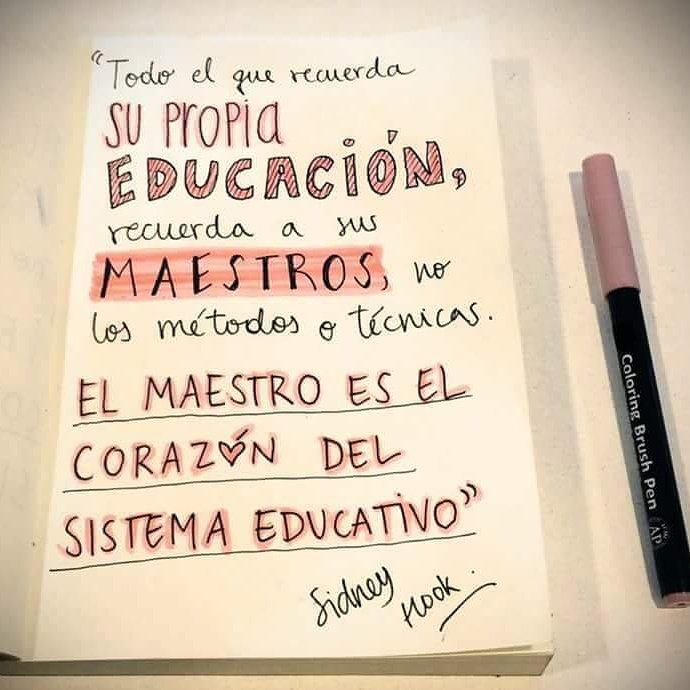 "Todo el que recuerda
SU PROPIA
EDUCACIÓN,
recuerda a sus
MAESTROS, no
los métodos o técnicas.
EL MAESTRO ES EL
CORAZÓN DEL
SISTEMA EDUCATIVO"
Sidney
Hook.
Coloring Brush Pen
AP